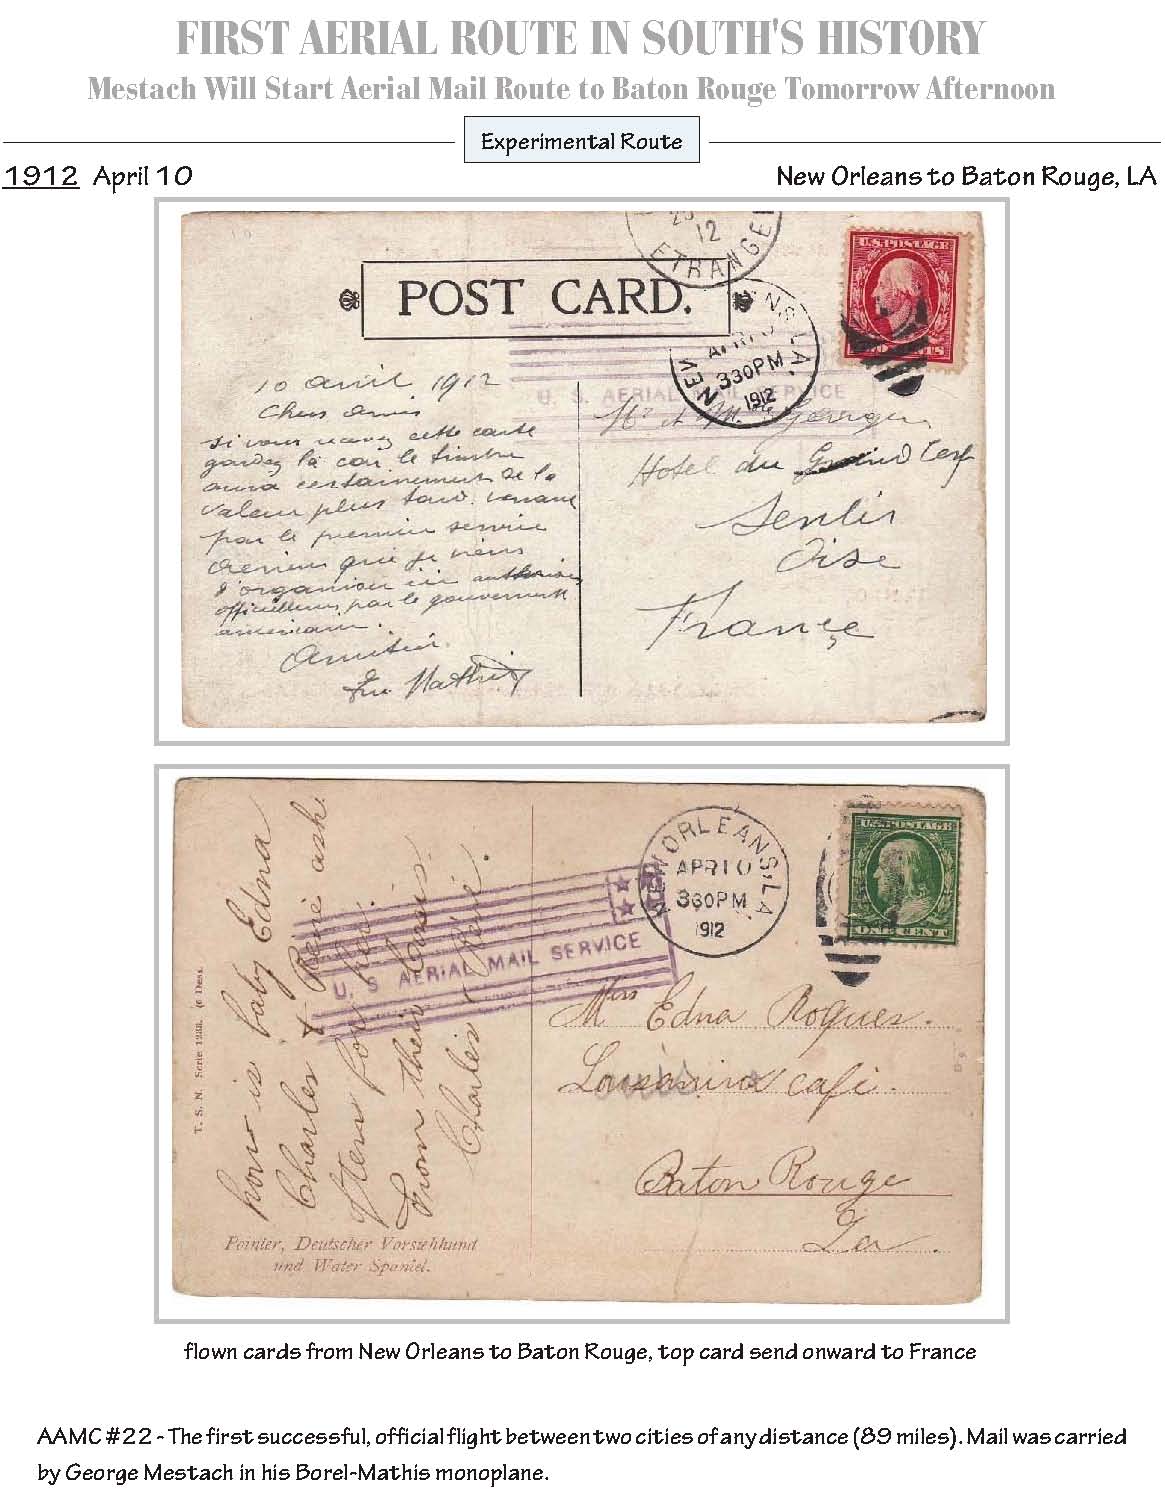 FIRST AERIAL ROUTE IN SOUTH'S HISTORY
Mestach Will Start Aerial Mail Route to Baton Rouge Tomorrow Afternoon
Experimental Route
1912 April 10
New Orleans to Baton Rouge, LA
12
ETRANGER
POST CARD.
U.S. POSTAGE
NEW ORLEANS, LA.
APR 10
330PM
1912
U. S. AERIAL MAIL SERVICE
10 avril 1912
Chers amis
si vous recevez cette carte
gardez la car le timbre
aura certainement de la
valeur plus tard venant
par le premier service
aerien que je viens
d'organiser ici
officiellement par le gouvernement
americain.
Mr et Mme Georges
Hotel du Grand Cerf
Senlis
Oise
France
NEW ORLEANS, LA
APR 10
330PM
1912
U.S. POSTAGE
ONE CENT
U. S AERIAL MAIL SERVICE
how is baby Edna
Charles & René ask
From their
Charles & René.
T. S. N. Serie 1238. (6 Dess.
Miss Edna Roques.
cafe.
Baton Rouge
La.
Pointer, Deutscher Vorstehhund
und Water Spaniel.
flown cards from New Orleans to Baton Rouge, top card send onward to France
AAMC #22 - The first successful, official flight between two cities of any distance (89 miles). Mail was carried
by George Mestach in his Borel-Mathis monoplane.